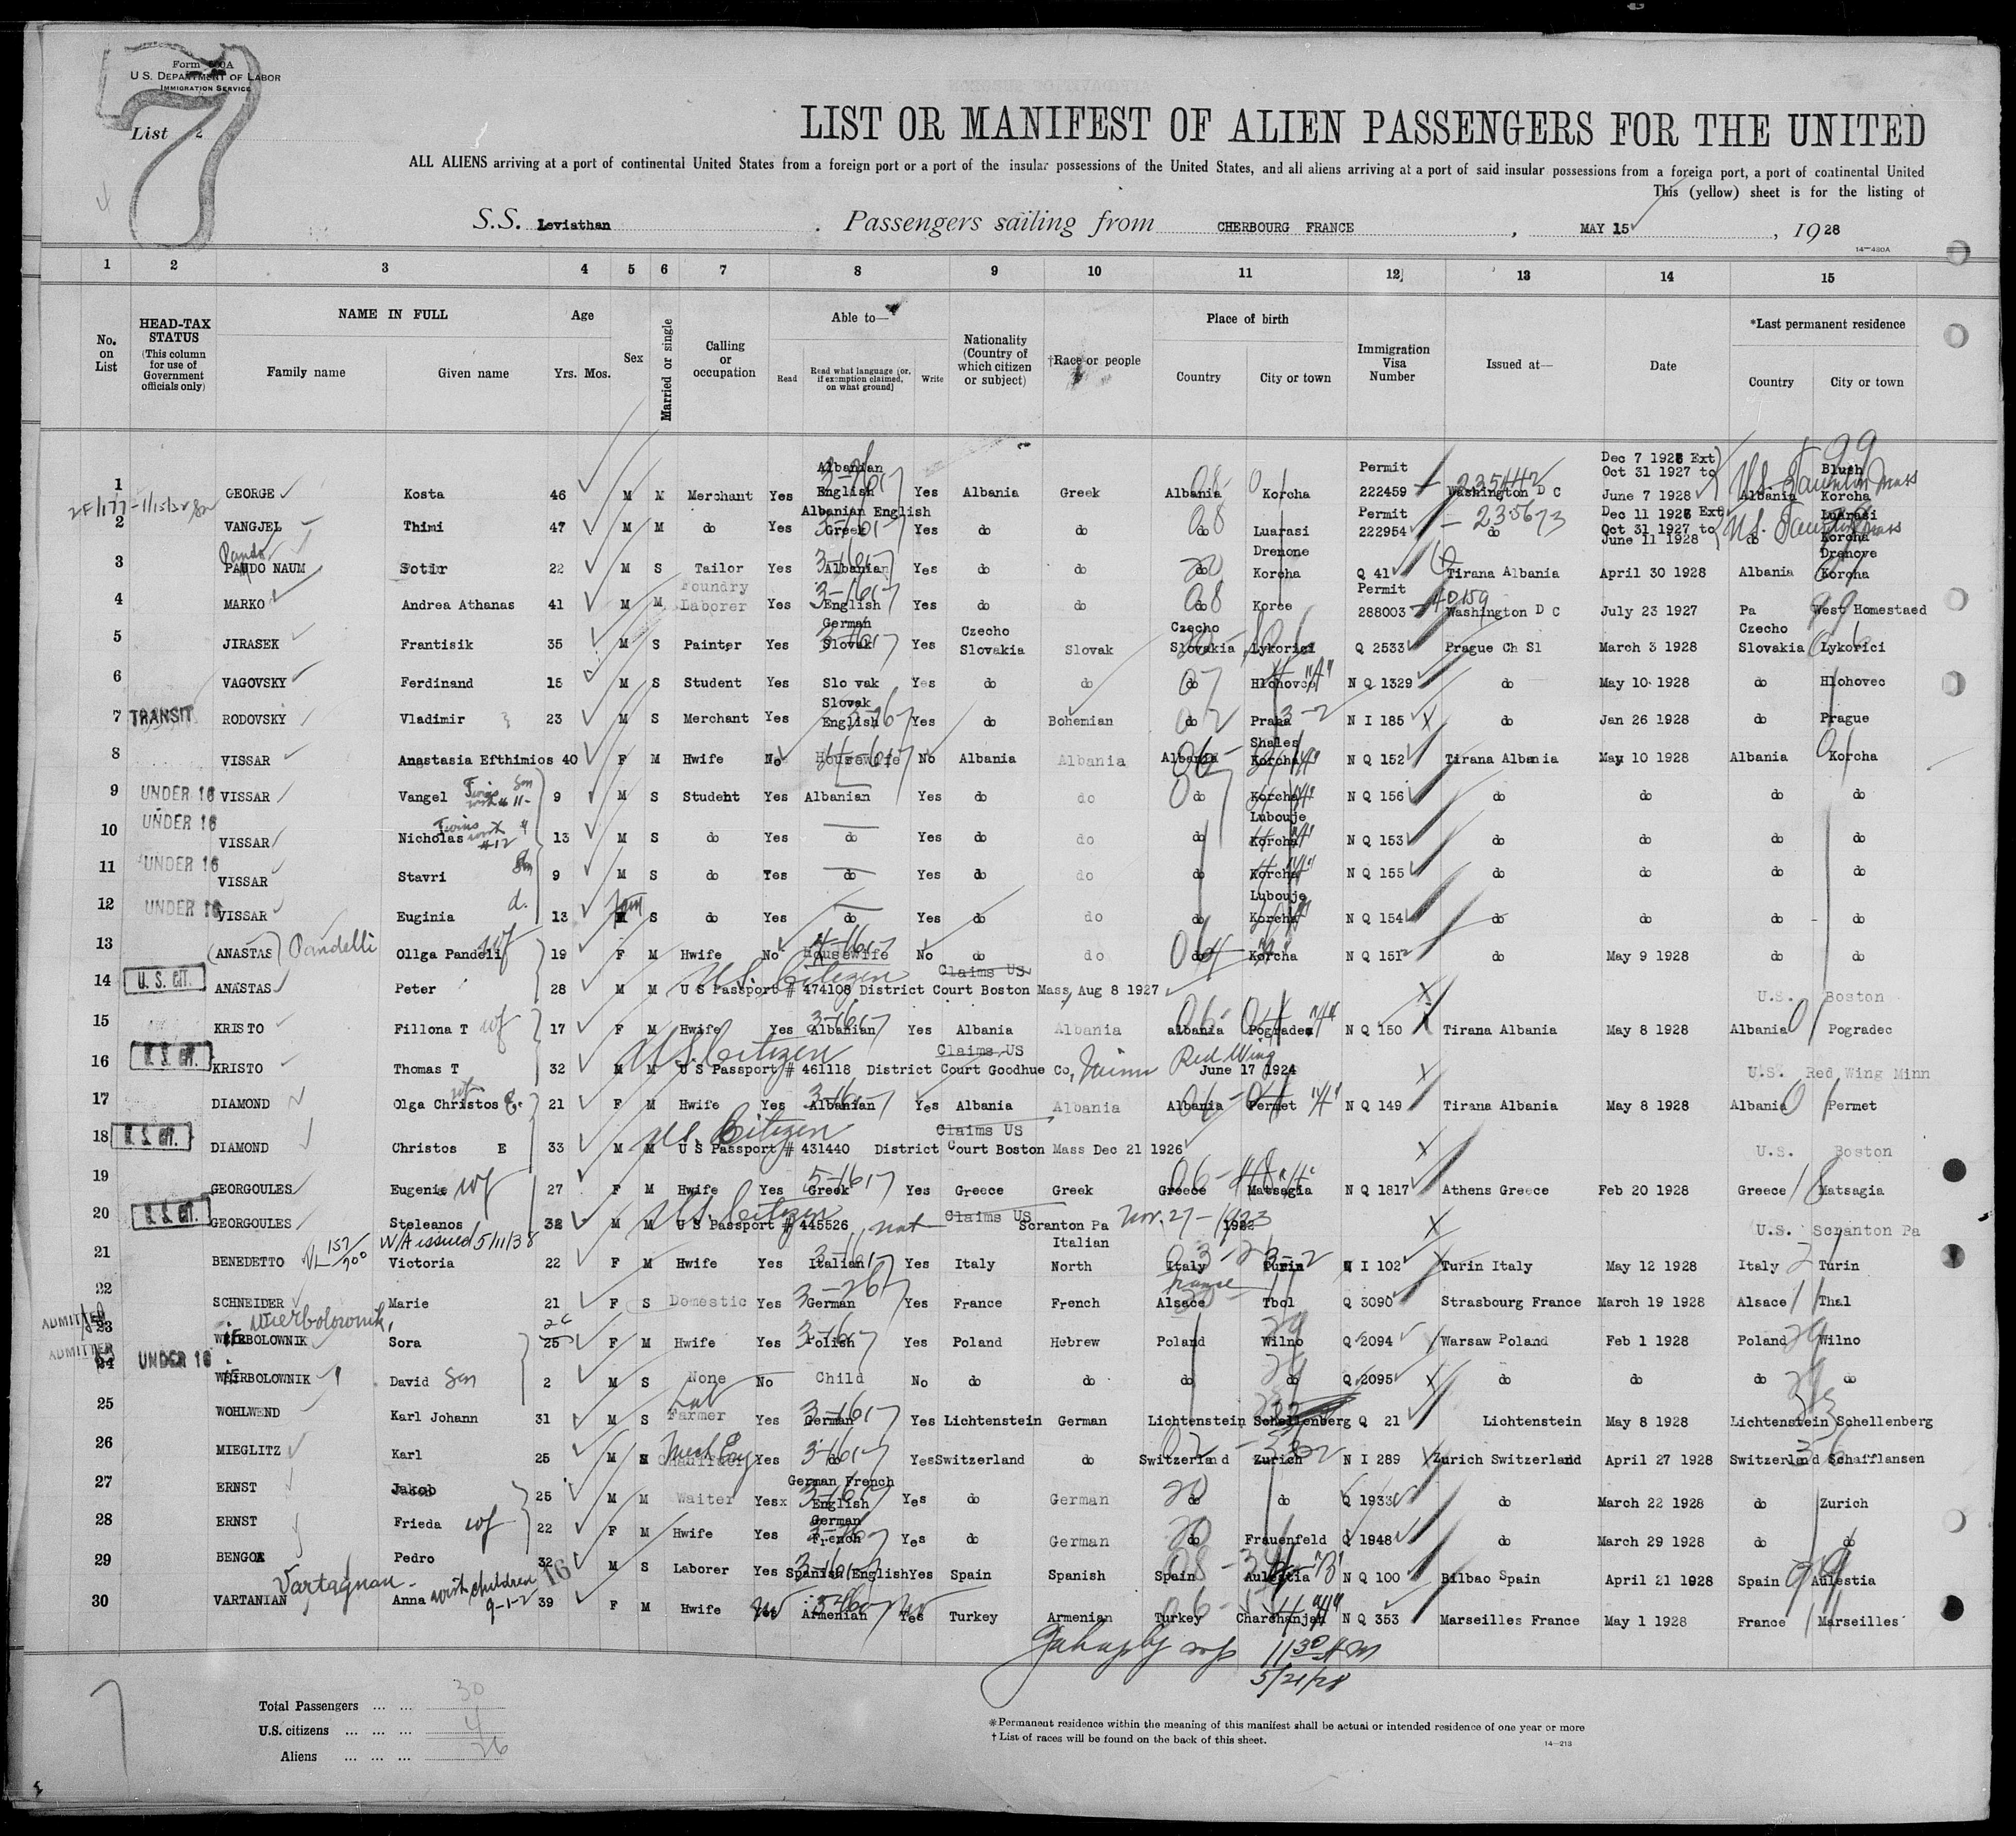 Form 500A
U.S. DEPARTMENT OF LABOR
IMMIGRATION SERVICE
7
List 2
LIST OR MANIFEST OF ALIEN PASSENGERS FOR THE UNITED
ALL ALIENS arriving at a port of continental United States from a foreign port or a port of the insular possessions of the United States, and all aliens arriving at a port of said insular possessions from a foreign port, a port of continental United
This (yellow) sheet is for the listing of
S.S. Leviathan . Passengers sailing from CHERBOURG FRANCE , MAY 15 , 1928
14—430A
1 2 3 4 5 6 7 8 9 10 11 12 13 14 15
No. on List
HEAD-TAX STATUS (This column for use of Government officials only)
NAME IN FULL
Family name Given name
Age Yrs. Mos.
Sex
Married or single
Calling or occupation
Able to—
Read Read what language [or, if exemption claimed, on what ground] Write
Nationality (Country of which citizen or subject)
†Race or people
Place of birth
Country City or town
Immigration Visa Number
Issued at—
Date
*Last permanent residence
Country City or town
1 GEORGE Kosta 46 M M Merchant Yes Albanian English Yes Albania Greek Albania Korcha Permit 222459 235442 Washington D C Dec 7 1928 Ext Oct 31 1927 to June 7 1928 Albania Korcha U.S. Mass
2 VANGJEL Thimi 47 M M do Yes Albanian English Greek Yes do do do Luarasi Permit 222954 235673 do Dec 11 1928 Ext Oct 31 1927 to June 11 1928 do Luarasi Korcha U.S. Mass
3 PANDO NAUM Sotir 22 M S Tailor Yes Albanian Yes do do do Drenone Korcha Q 41 Tirana Albania April 30 1928 Albania Drenove Korcha
4 MARKO Andrea Athanas 41 M M Foundry Laborer Yes English Yes do do do Korce Permit 288003 40159 Washington D C July 23 1927 Pa West Homestaed
5 JIRASEK Frantisik 35 M S Painter Yes German Slovak Yes Czecho Slovakia Slovak Czecho Slovakia Lykorici Q 2533 Prague Ch Sl March 3 1928 Czecho Slovakia Lykorici
6 VAGOVSKY Ferdinand 15 M S Student Yes Slo vak Yes do do do Hlohovec N Q 1329 do May 10 1928 do Hlohovec
7 TRANSIT RODOVSKY Vladimir 23 M S Merchant Yes Slovak English Yes do Bohemian do Praha N I 185 do Jan 26 1928 do Prague
8 VISSAR Anastasia Efthimios 40 F M Hwife No Housewife No Albania Albania Albania Shales Korcha N Q 152 Tirana Albania May 10 1928 Albania Korcha
9 UNDER 16 VISSAR Vangel 9 M S Student Yes Albanian Yes do do do Korcha N Q 156 do do do do
10 UNDER 16 VISSAR Nicholas 13 M S do Yes do Yes do do do Lubouje Korcha N Q 153 do do do do
11 UNDER 16 VISSAR Stavri 9 M S do Yes do Yes do do do Korcha N Q 155 do do do do
12 UNDER 16 VISSAR Euginia d. 13 S do Yes do Yes do do do Lubouje Korcha N Q 154 do do do do
13 (ANASTAS) Pandelli Ollga Pandeli wf 19 F M Hwife No Housewife No do do do Korcha N Q 151 do May 9 1928 do do
14 U.S. CIT. ANASTAS Peter 28 M M U.S. Citizen U S Passport # 474108 District Court Boston Mass, Aug 8 1927 Claims US U.S. Boston
15 KRISTO Fillona T wf 17 F M Hwife Yes Albanian Yes Albania Albania albania Pogradez N Q 150 Tirana Albania May 8 1928 Albania Pogradec
16 U.S. CIT. KRISTO Thomas T 32 M M U.S. Citizen U S Passport # 461118 District Court Goodhue Co, Minn Red Wing June 17 1924 Claims US U.S. Red Wing Minn
17 DIAMOND Olga Christos E. wf 21 F M Hwife Yes Albanian Yes Albania Albania Albania Permet N Q 149 Tirana Albania May 8 1928 Albania Permet
18 U.S. CIT. DIAMOND Christos E 33 M M U.S. Citizen U S Passport # 431440 District Court Boston Mass Dec 21 1926 Claims US U.S. Boston
19 GEORGOULES Eugenie wf 27 F M Hwife Yes Greek Yes Greece Greek Greece Matsagia N Q 1817 Athens Greece Feb 20 1928 Greece Matsagia
20 U.S. CIT. GEORGOULES Steleanos 38 M M U.S. Citizen U S Passport # 445526 nat Claims US Scranton Pa Nov. 27-1923 U.S. Scranton Pa
W/A issued 5/11/38
21 BENEDETTO Victoria 22 F M Hwife Yes Italian Yes Italy Italian North Italy Turin N I 102 Turin Italy May 12 1928 Italy Turin
22 SCHNEIDER Marie 21 F S Domestic Yes German Yes France French France Alsace Tbol Q 3090 Strasbourg France March 19 1928 Alsace Thal
ADMITTED 23 Wierbolownik, WIERBOLOWNIK Sora 26 25 F M Hwife Yes Polish Yes Poland Hebrew Poland Wilno Q 2094 Warsaw Poland Feb 1 1928 Poland Wilno
ADMITTED 24 UNDER 16 WIERBOLOWNIK David Son 2 M S None No Child No do do do do Q 2095 do do do do
25 WOHLWEND Karl Johann 31 M S Lab Farmer Yes German Yes Lichtenstein German Lichtenstein Schellenberg Q 21 Lichtenstein May 8 1928 Lichtenstein Schellenberg
26 MIEGLITZ Karl 25 M S Mech Eng Chauffeur Yes do Yes Switzerland do Switzerland Zurich N I 289 Zurich Switzerland April 27 1928 Switzerland Schafflansen
27 ERNST Jakob 25 M M Waiter Yes German French English Yes do German do do Q 1933 do March 22 1928 do Zurich
28 ERNST Frieda wf 22 F M Hwife Yes German French Yes do German do Frauenfeld Q 1948 do March 29 1928 do do
29 BENGOA Pedro 32 M S Laborer Yes Spanish English Yes Spain Spanish Spain Aulestia N Q 100 Bilbao Spain April 21 1928 Spain Aulestia
30 VARTANIAN Vartagnan Anna with children 9-1-2 39 F M Hwife Yes Armenian Yes Turkey Armenian Turkey Charchanjak N Q 353 Marseilles France May 1 1928 France Marseilles
11 30 AM
5/21/28
Total Passengers ... ... 30
U.S. citizens ... ... ... 4
Aliens ... ... ... 26
*Permanent residence within the meaning of this manifest shall be actual or intended residence of one year or more
† List of races will be found on the back of this sheet.
14—213